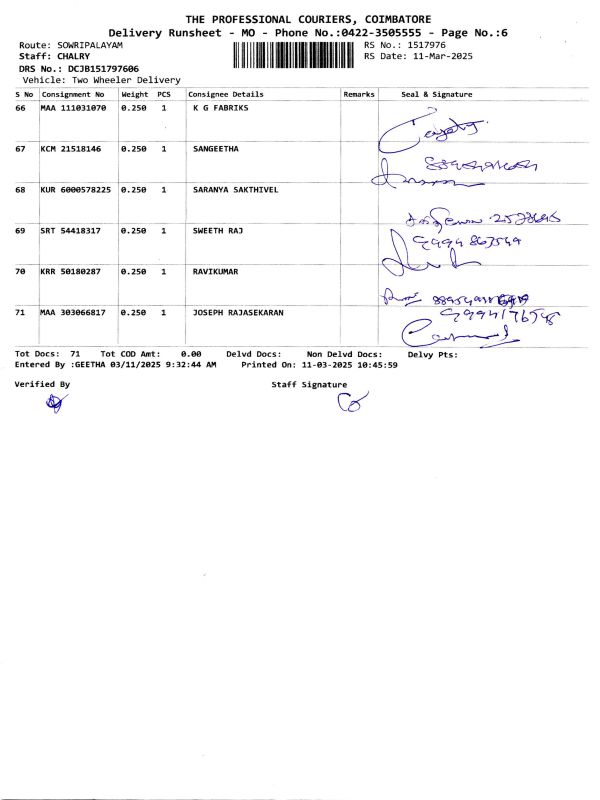 THE PROFESSIONAL COURIERS, COIMBATORE
Delivery Runsheet - MO - Phone No.:0422-3505555 - Page No.:6
Route: SOWRIPALAYAM RS No.: 1517976
Staff: CHALRY RS Date: 11-Mar-2025
DRS No.: DCJB151797606
Vehicle: Two Wheeler Delivery
S No Consignment No Weight PCS Consignee Details Remarks Seal & Signature
66 MAA 111031070 0.250 1 K G FABRIKS
67 KCM 21518146 0.250 1 SANGEETHA
68 KUR 6000578225 0.250 1 SARANYA SAKTHIVEL
69 SRT 54418317 0.250 1 SWEETH RAJ
70 KRR 50180287 0.250 1 RAVIKUMAR
71 MAA 303066817 0.250 1 JOSEPH RAJASEKARAN
Tot Docs: 71 Tot COD Amt: 0.00 Delvd Docs: Non Delvd Docs: Delvy Pts:
Entered By :GEETHA 03/11/2025 9:32:44 AM Printed On: 11-03-2025 10:45:59
Verified By Staff Signature